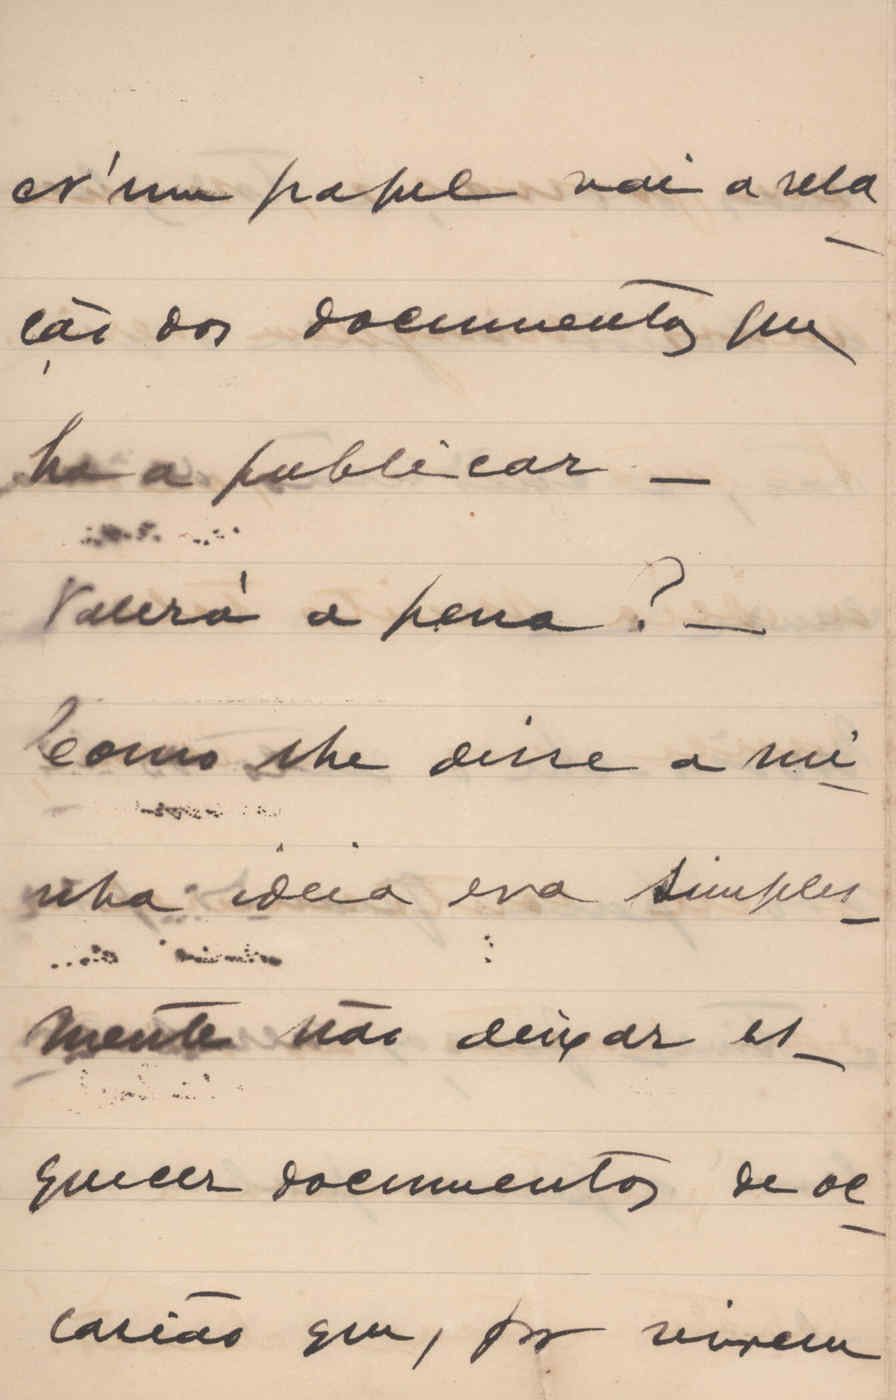 N'um papel vai a rela-
ção dos documentos que
ha a publicar —
Valerá a pena? —
Como lhe disse a mi-
nha ideia era simples-
mente não deixar es-
quecer documentos de oc-
casião que, por virem